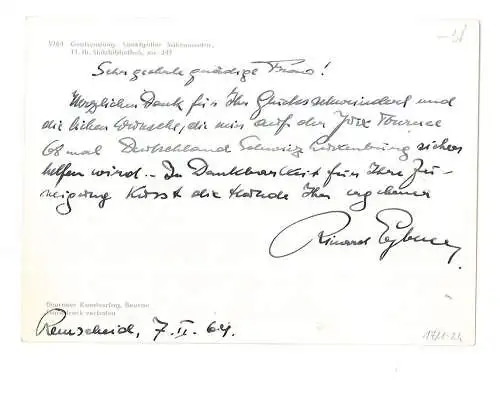 5969 Gratszeuung Sanktgaller Sakramentar,
11. Jh. Stiftsbibliothek, nr. 341
Sehr geehrte gnädige Frau!
Herzlichen Dank für Ihr Glücksschweinderl und
die lieben Wünsche, die mir auf der Tournee
68 mal Deutschland Schweiz Luxemburg sicher
helfen wird. – In Dankbarkeit für Ihre Zu-
neigung küsst die Hände Ihr ergebener
Richard Eybner
Beuroner Kunstverlag, Beuron
Nachdruck verboten
Remscheid, 7. II. 64.
1711-24